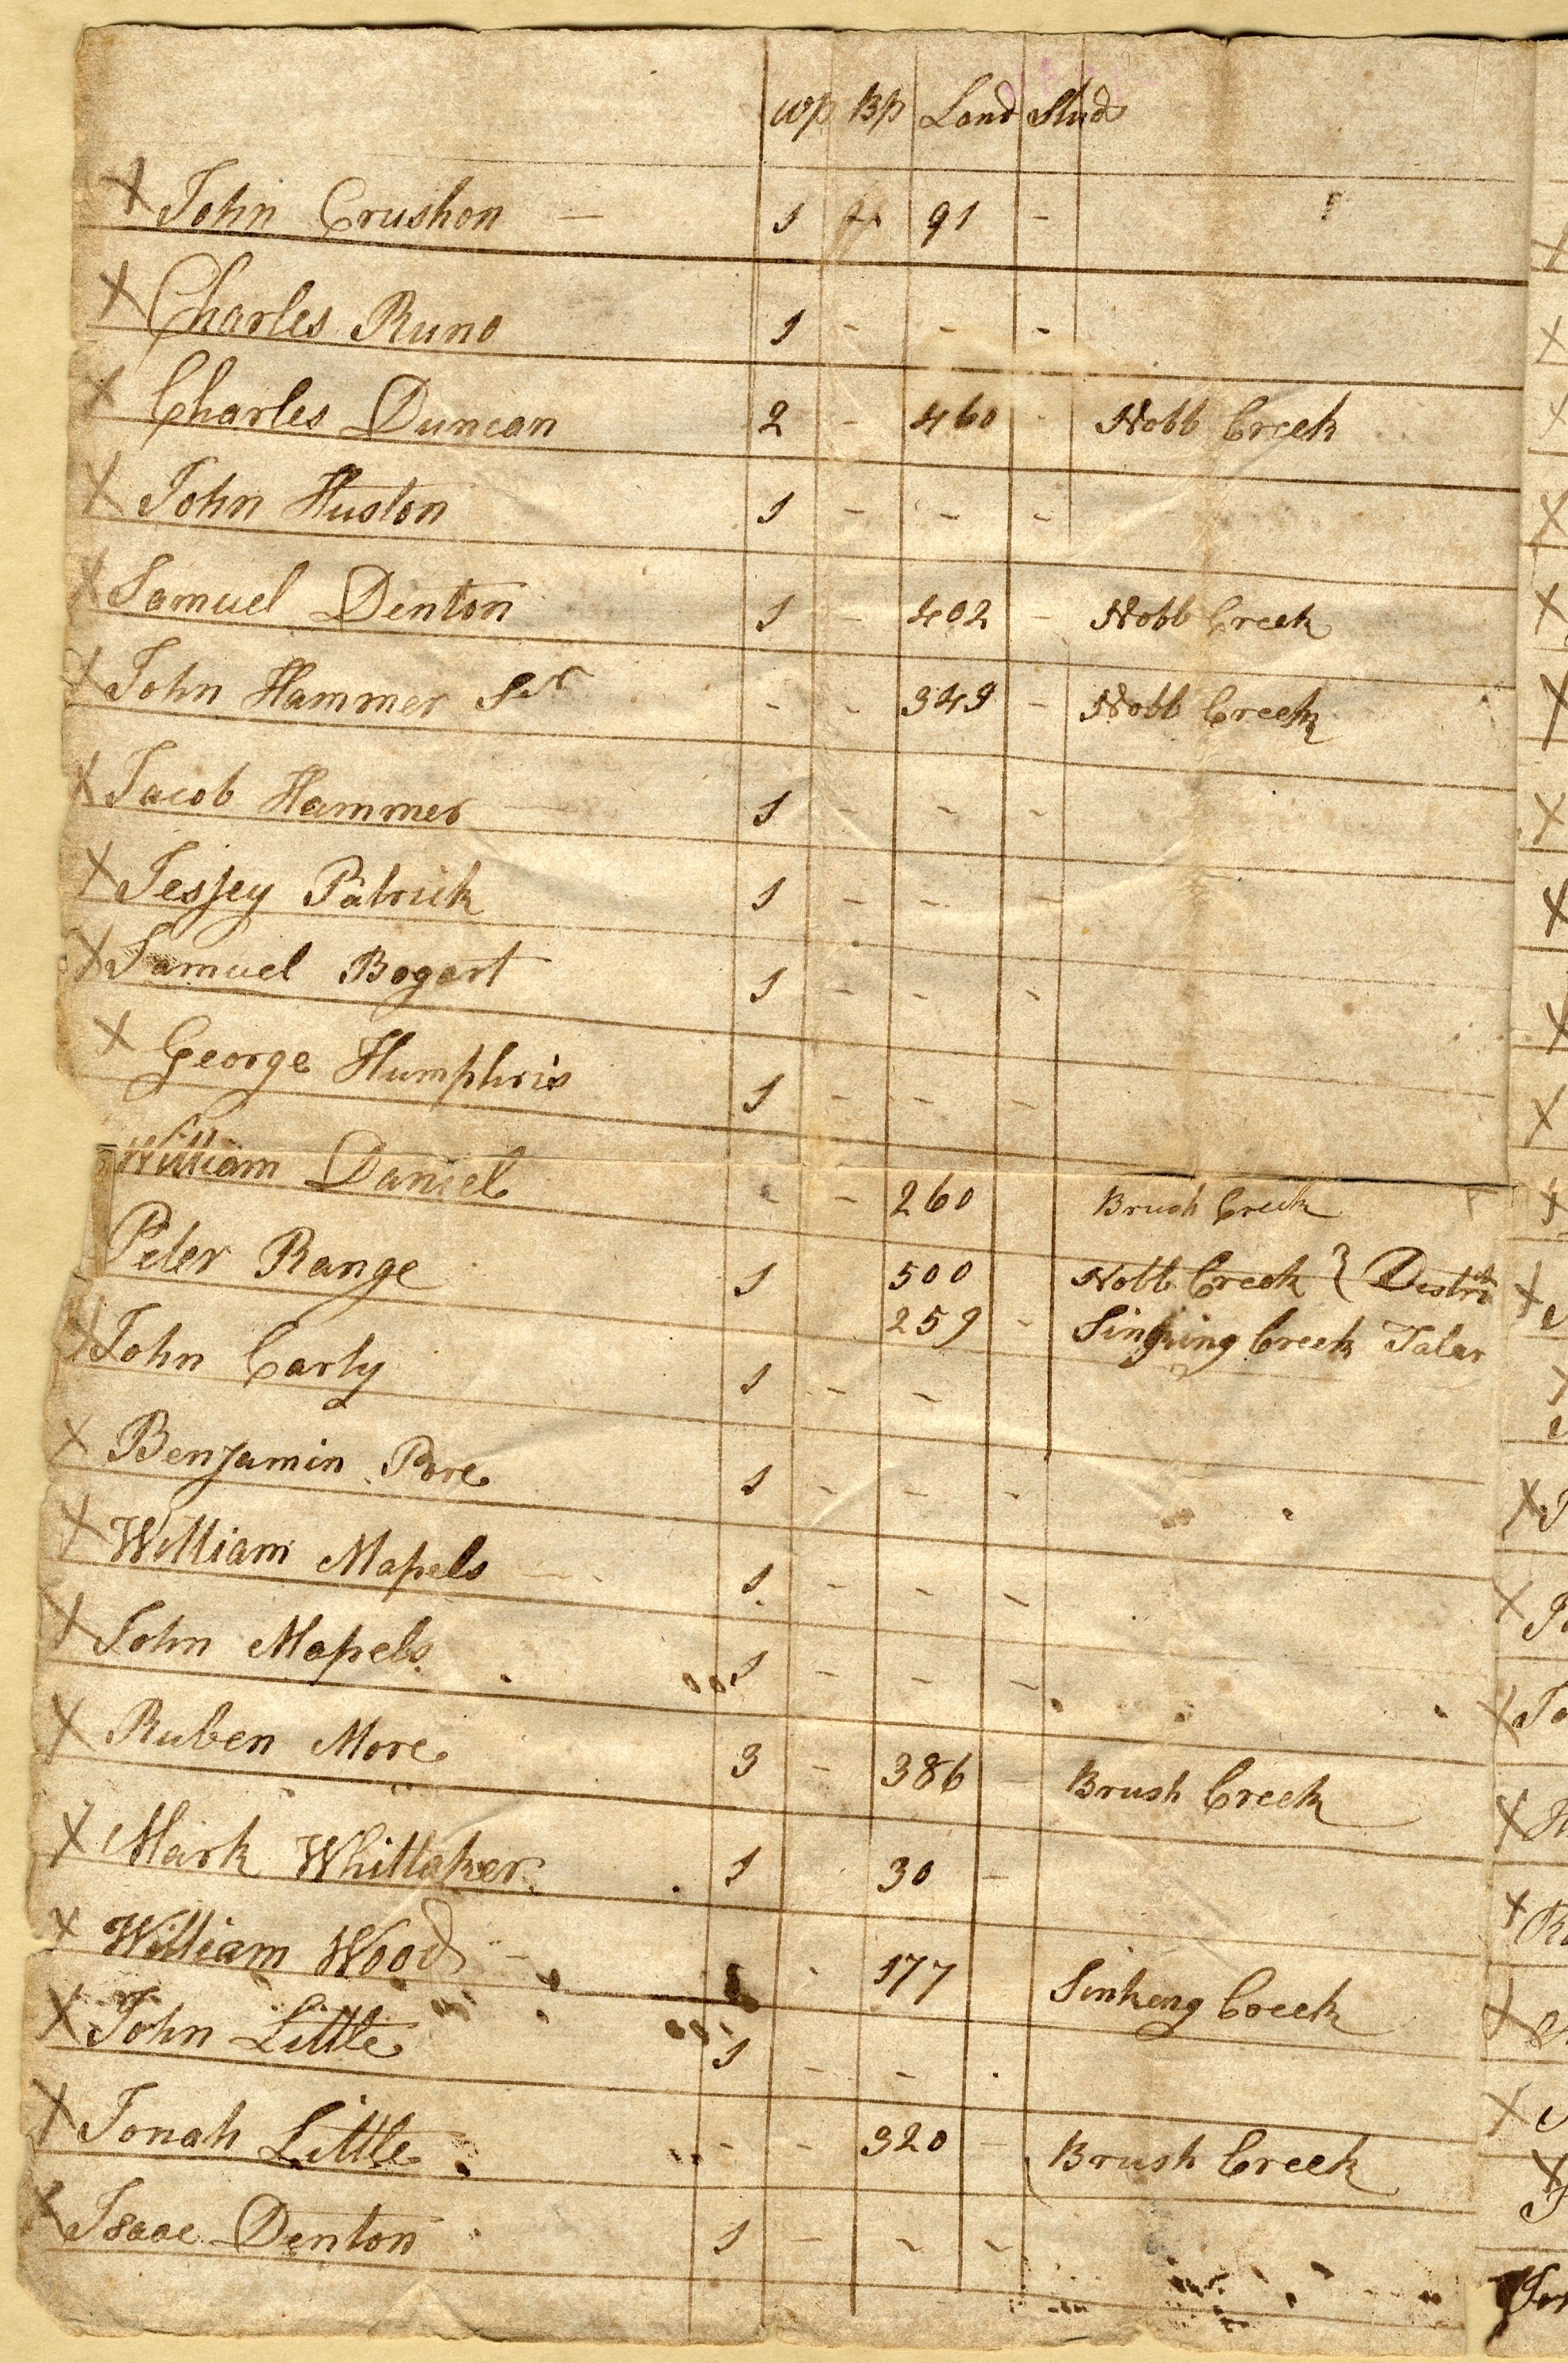 wp Bp Land Stud
X John Crushon — 1 91 -
X Charles Runo 1 - - -
X Charles Duncan 2 - 460 - Nobb Creek
X John Huston 1 - - -
X Samuel Denton 1 - 402 - Nobb Creek
X John Hammer Sr - - 349 - Nobb Creek
X Jacob Hammer 1 - - -
X Jessey Patrick 1 - - -
X Samuel Bogart 1 - - -
X George Humphris 1 - - -
William Daniel - - 260 Brush Creek
Peter Range 1 500 Nobb Creek }
259 - Sinking Creek
X John Carty 1 - -
X Benjamin Pore 1 - - -
X William Mapels 1 - - -
X John Mapels 1 - - -
X Ruben More 3 - 386 - Brush Creek
X Mark Whittaker 1 30 -
X William Wood - 177 Sinkeng Creek
X John Little 1 - - -
X Jonah Little - - 320 - Brush Creek
X Isaac Denton 1 - - -